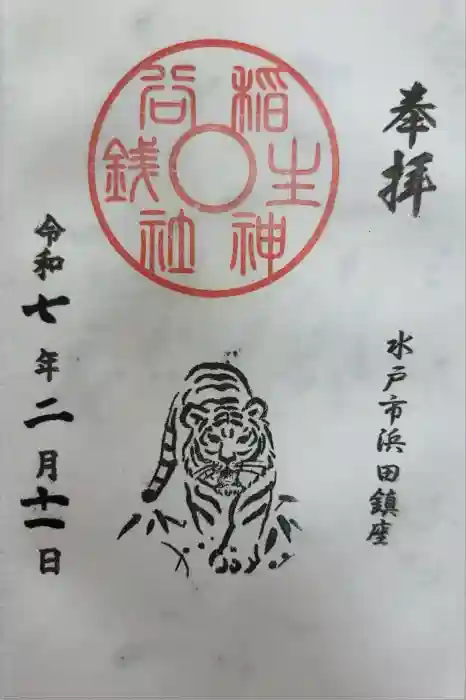 奉拝
水戸市浜田鎮座
銭谷稲生神社
令和七年二月十一日